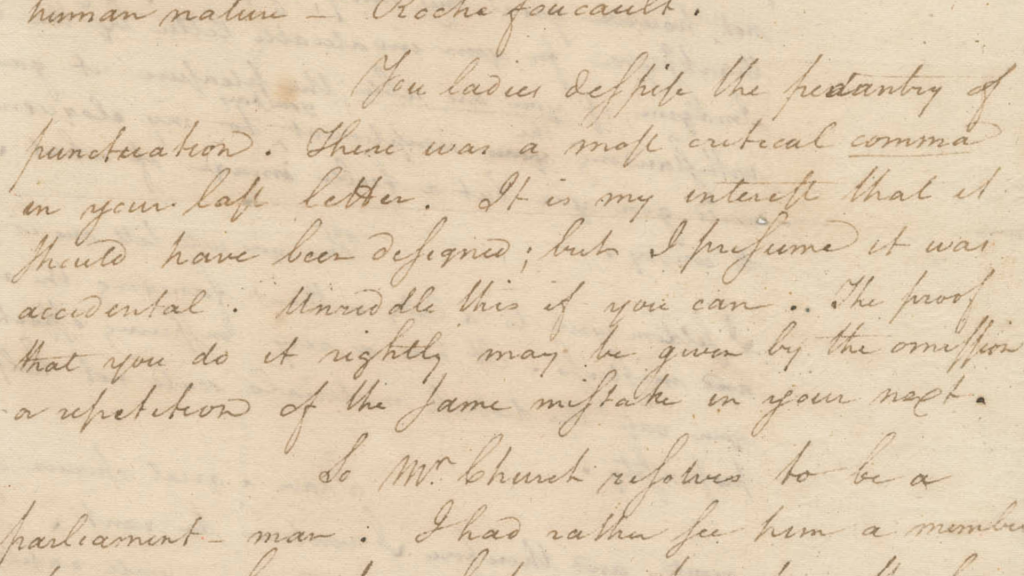 human nature – Rochefoucault.
You ladies despise the pedantry of
punctuation. There was a most critical comma
in your last letter. It is my interest that it
should have been designed; but I presume it was
accidental. Unriddle this if you can.. The proof
that you do it rightly may be given by the omission
or repetition of the same mistake in your next.
So Mr. Church resolves to be a
parliament-man. I had rather see him a member